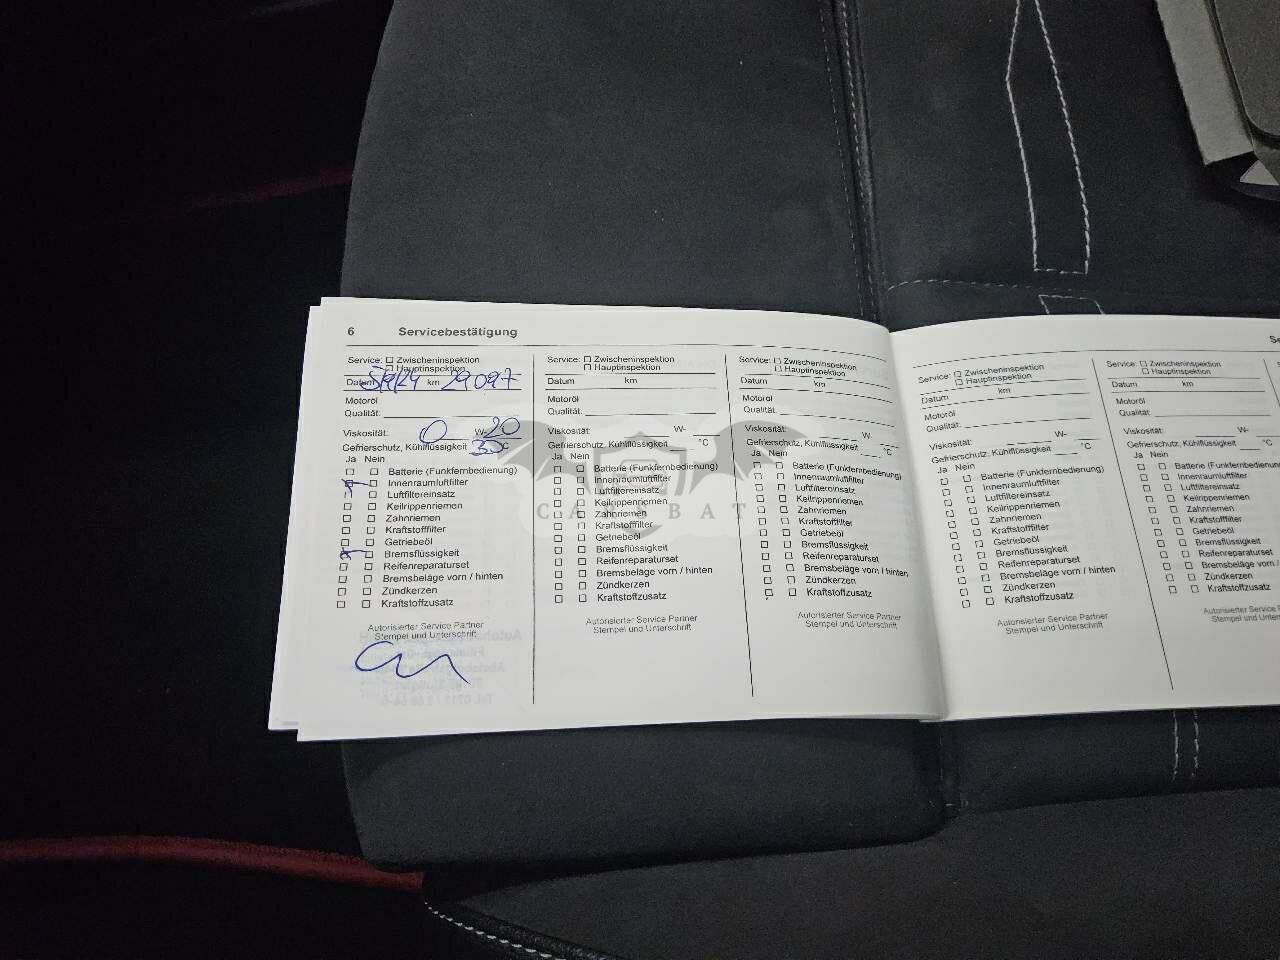 6 Servicebestätigung
Service: Zwischeninspektion
Hauptinspektion
Datum 5/9/24 km 29097
Motoröl
Qualität:
Viskosität: 0 W-20
Gefrierschutz, Kühlflüssigkeit 35°C
Ja Nein
Batterie (Funkfernbedienung)
Innenraumluftfilter
Luftfiltereinsatz
Keilrippenriemen
Zahnriemen
Kraftstofffilter
Getriebeöl
Bremsflüssigkeit
Reifenreparaturset
Bremsbeläge vorn / hinten
Zündkerzen
Kraftstoffzusatz
Autorisierter Service Partner
Stempel und Unterschrift
Service: Zwischeninspektion
Hauptinspektion
Datum km
Motoröl
Qualität:
Viskosität: W-
Gefrierschutz, Kühlflüssigkeit °C
Ja Nein
Batterie (Funkfernbedienung)
Innenraumluftfilter
Luftfiltereinsatz
Keilrippenriemen
Zahnriemen
Kraftstofffilter
Getriebeöl
Bremsflüssigkeit
Reifenreparaturset
Bremsbeläge vorn / hinten
Zündkerzen
Kraftstoffzusatz
Autorisierter Service Partner
Stempel und Unterschrift
Service: Zwischeninspektion
Hauptinspektion
Datum km
Motoröl
Qualität:
Viskosität: W-
Gefrierschutz, Kühlflüssigkeit °C
Ja Nein
Batterie (Funkfernbedienung)
Innenraumluftfilter
Luftfiltereinsatz
Keilrippenriemen
Zahnriemen
Kraftstofffilter
Getriebeöl
Bremsflüssigkeit
Reifenreparaturset
Bremsbeläge vorn / hinten
Zündkerzen
Kraftstoffzusatz
Autorisierter Service Partner
Stempel und Unterschrift
Service: Zwischeninspektion
Hauptinspektion
Datum km
Motoröl
Qualität:
Viskosität: W-
Gefrierschutz, Kühlflüssigkeit °C
Ja Nein
Batterie (Funkfernbedienung)
Innenraumluftfilter
Luftfiltereinsatz
Keilrippenriemen
Zahnriemen
Kraftstofffilter
Getriebeöl
Bremsflüssigkeit
Reifenreparaturset
Bremsbeläge vorn / hinten
Zündkerzen
Kraftstoffzusatz
Autorisierter Service Partner
Stempel und Unterschrift
Se
Service: Zwischeninspektion
Hauptinspektion
Datum km
Motoröl
Qualität:
Viskosität: W-
Gefrierschutz, Kühlflüssigkeit °C
Ja Nein
Batterie (Funkfernbedienung)
Innenraumluftfilter
Luftfiltereinsatz
Keilrippenriemen
Zahnriemen
Kraftstofffilter
Getriebeöl
Bremsflüssigkeit
Reifenreparaturset
Bremsbeläge vorn /
Zündkerzen
Kraftstoffzusatz
Autorisierter Service Par
Stempel und Untersch